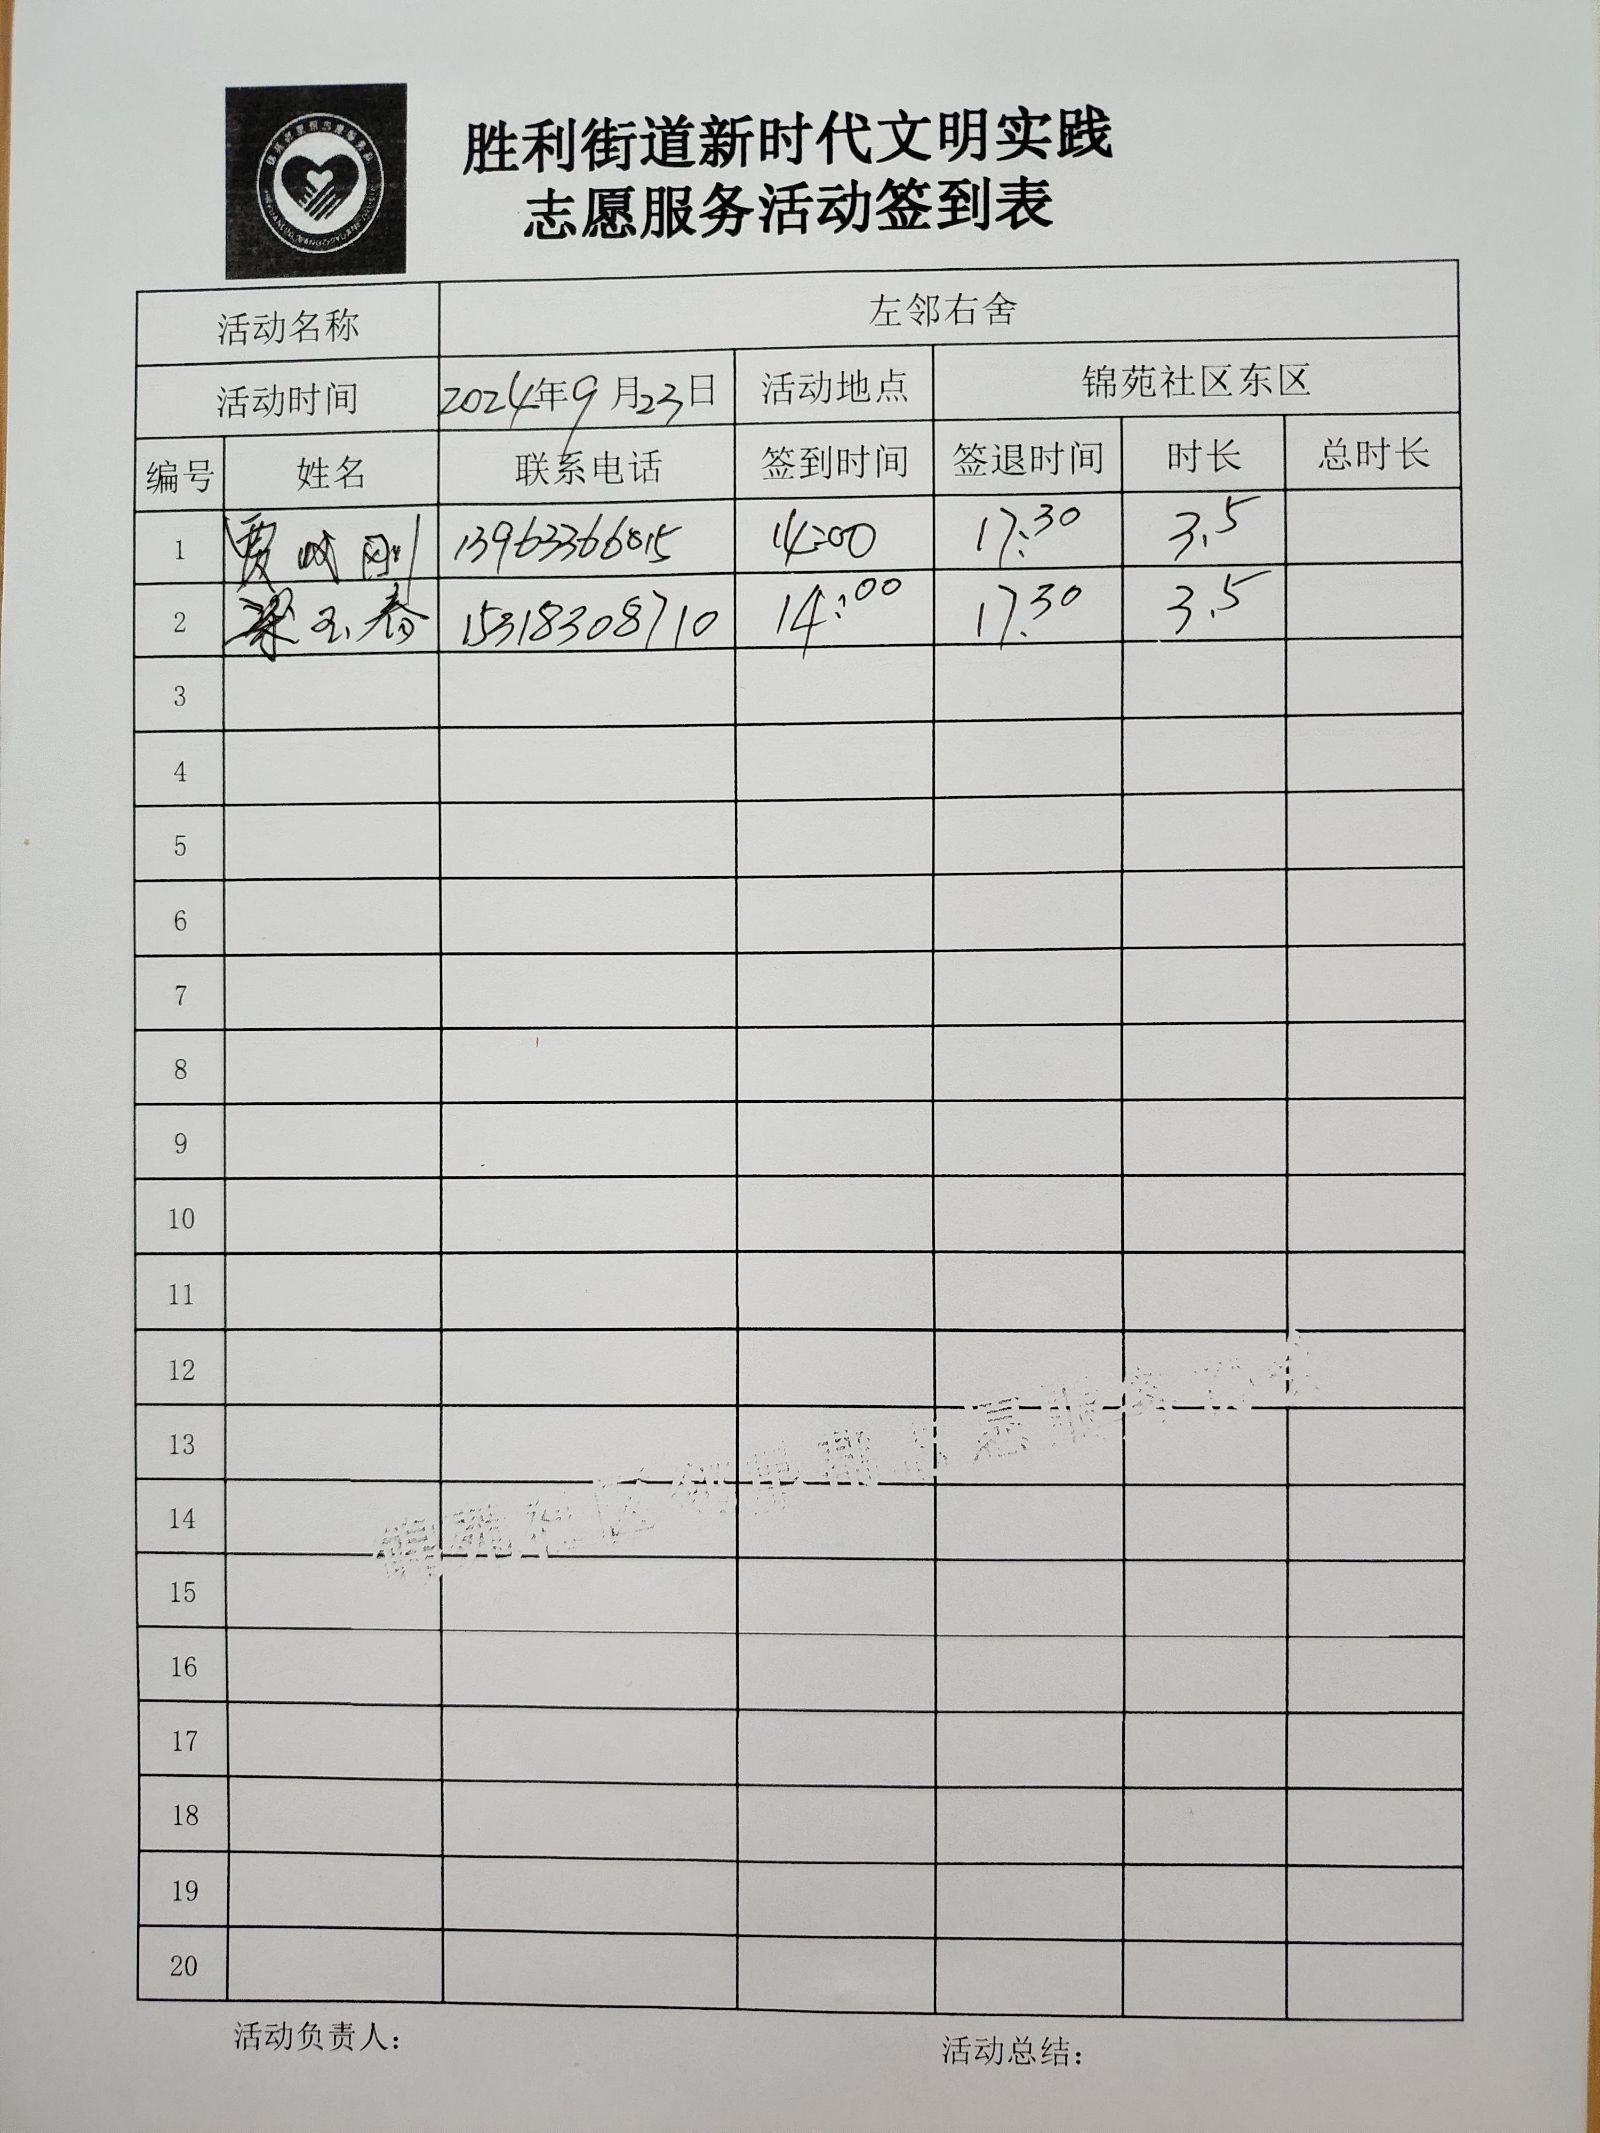 胜利街道新时代文明实践
志愿服务活动签到表
活动名称 左邻右舍
活动时间 2024年9月23日 活动地点 锦苑社区东区
编号 姓名 联系电话 签到时间 签退时间 时长 总时长
1 贾 刚 13963366815 14:00 17:30 3.5
2 梁玉春 15318308710 14:00 17:30 3.5
3
4
5
6
7
8
9
10
11
12
13
14
15
16
17
18
19
20
活动负责人： 活动总结：